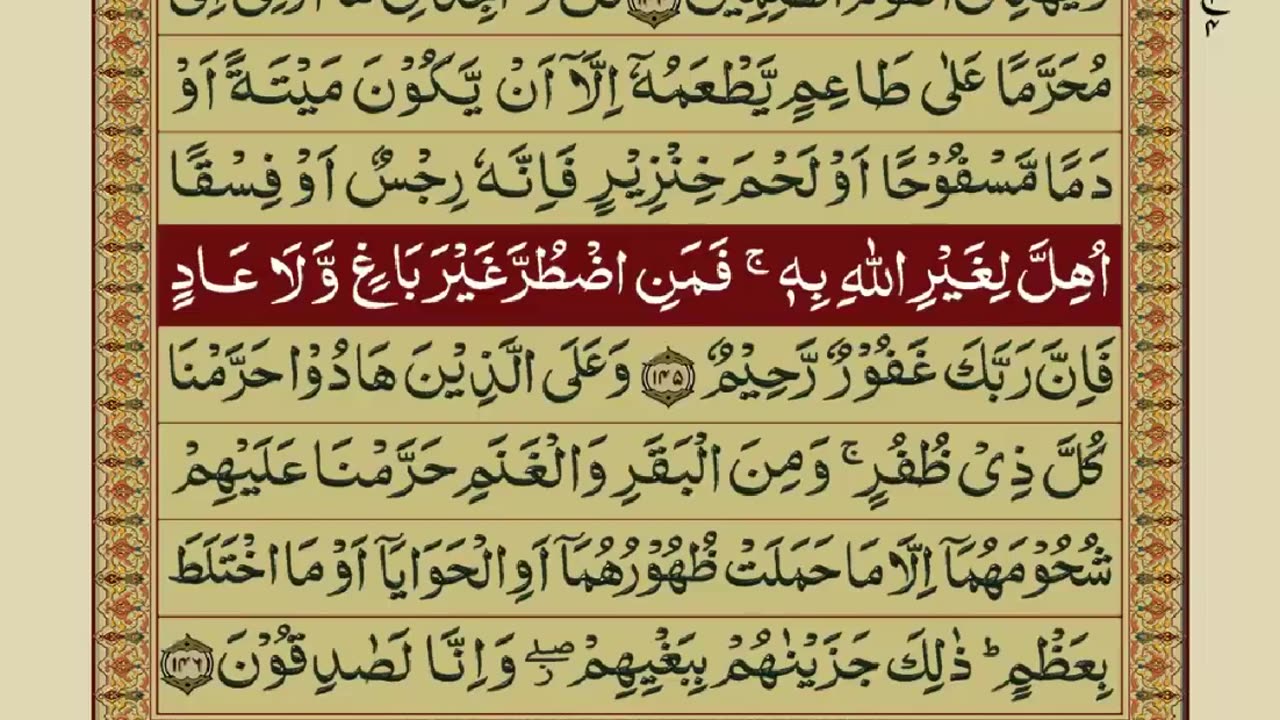 مُحَرَّمًا عَلٰى طَاعِمٍ يَّطْعَمُهٗۤ اِلَّاۤ اَنْ يَّكُوْنَ مَيْتَةً اَوْ
دَمًا مَّسْفُوْحًا اَوْ لَحْمَ خِنْزِيْرٍ فَاِنَّهٗ رِجْسٌ اَوْ فِسْقًا
اُهِلَّ لِغَيْرِ اللّٰهِ بِهٖ ۚ فَمَنِ اضْطُرَّ غَيْرَ بَاغٍ وَّلَا عَادٍ
فَاِنَّ رَبَّكَ غَفُوْرٌ رَّحِيْمٌ ۝۱۴۵ وَعَلَى الَّذِيْنَ هَادُوْا حَرَّمْنَا
كُلَّ ذِىْ ظُفُرٍ ۚ وَمِنَ الْبَقَرِ وَالْغَنَمِ حَرَّمْنَا عَلَيْهِمْ
شُحُوْمَهُمَاۤ اِلَّا مَا حَمَلَتْ ظُهُوْرُهُمَاۤ اَوِ الْحَوَايَاۤ اَوْ مَا اخْتَلَطَ
بِعَظْمٍ ؕ ذٰلِكَ جَزَيْنٰهُمْ بِبَغْيِهِمْ ۖ وَاِنَّا لَصٰدِقُوْنَ ۝۱۴۶